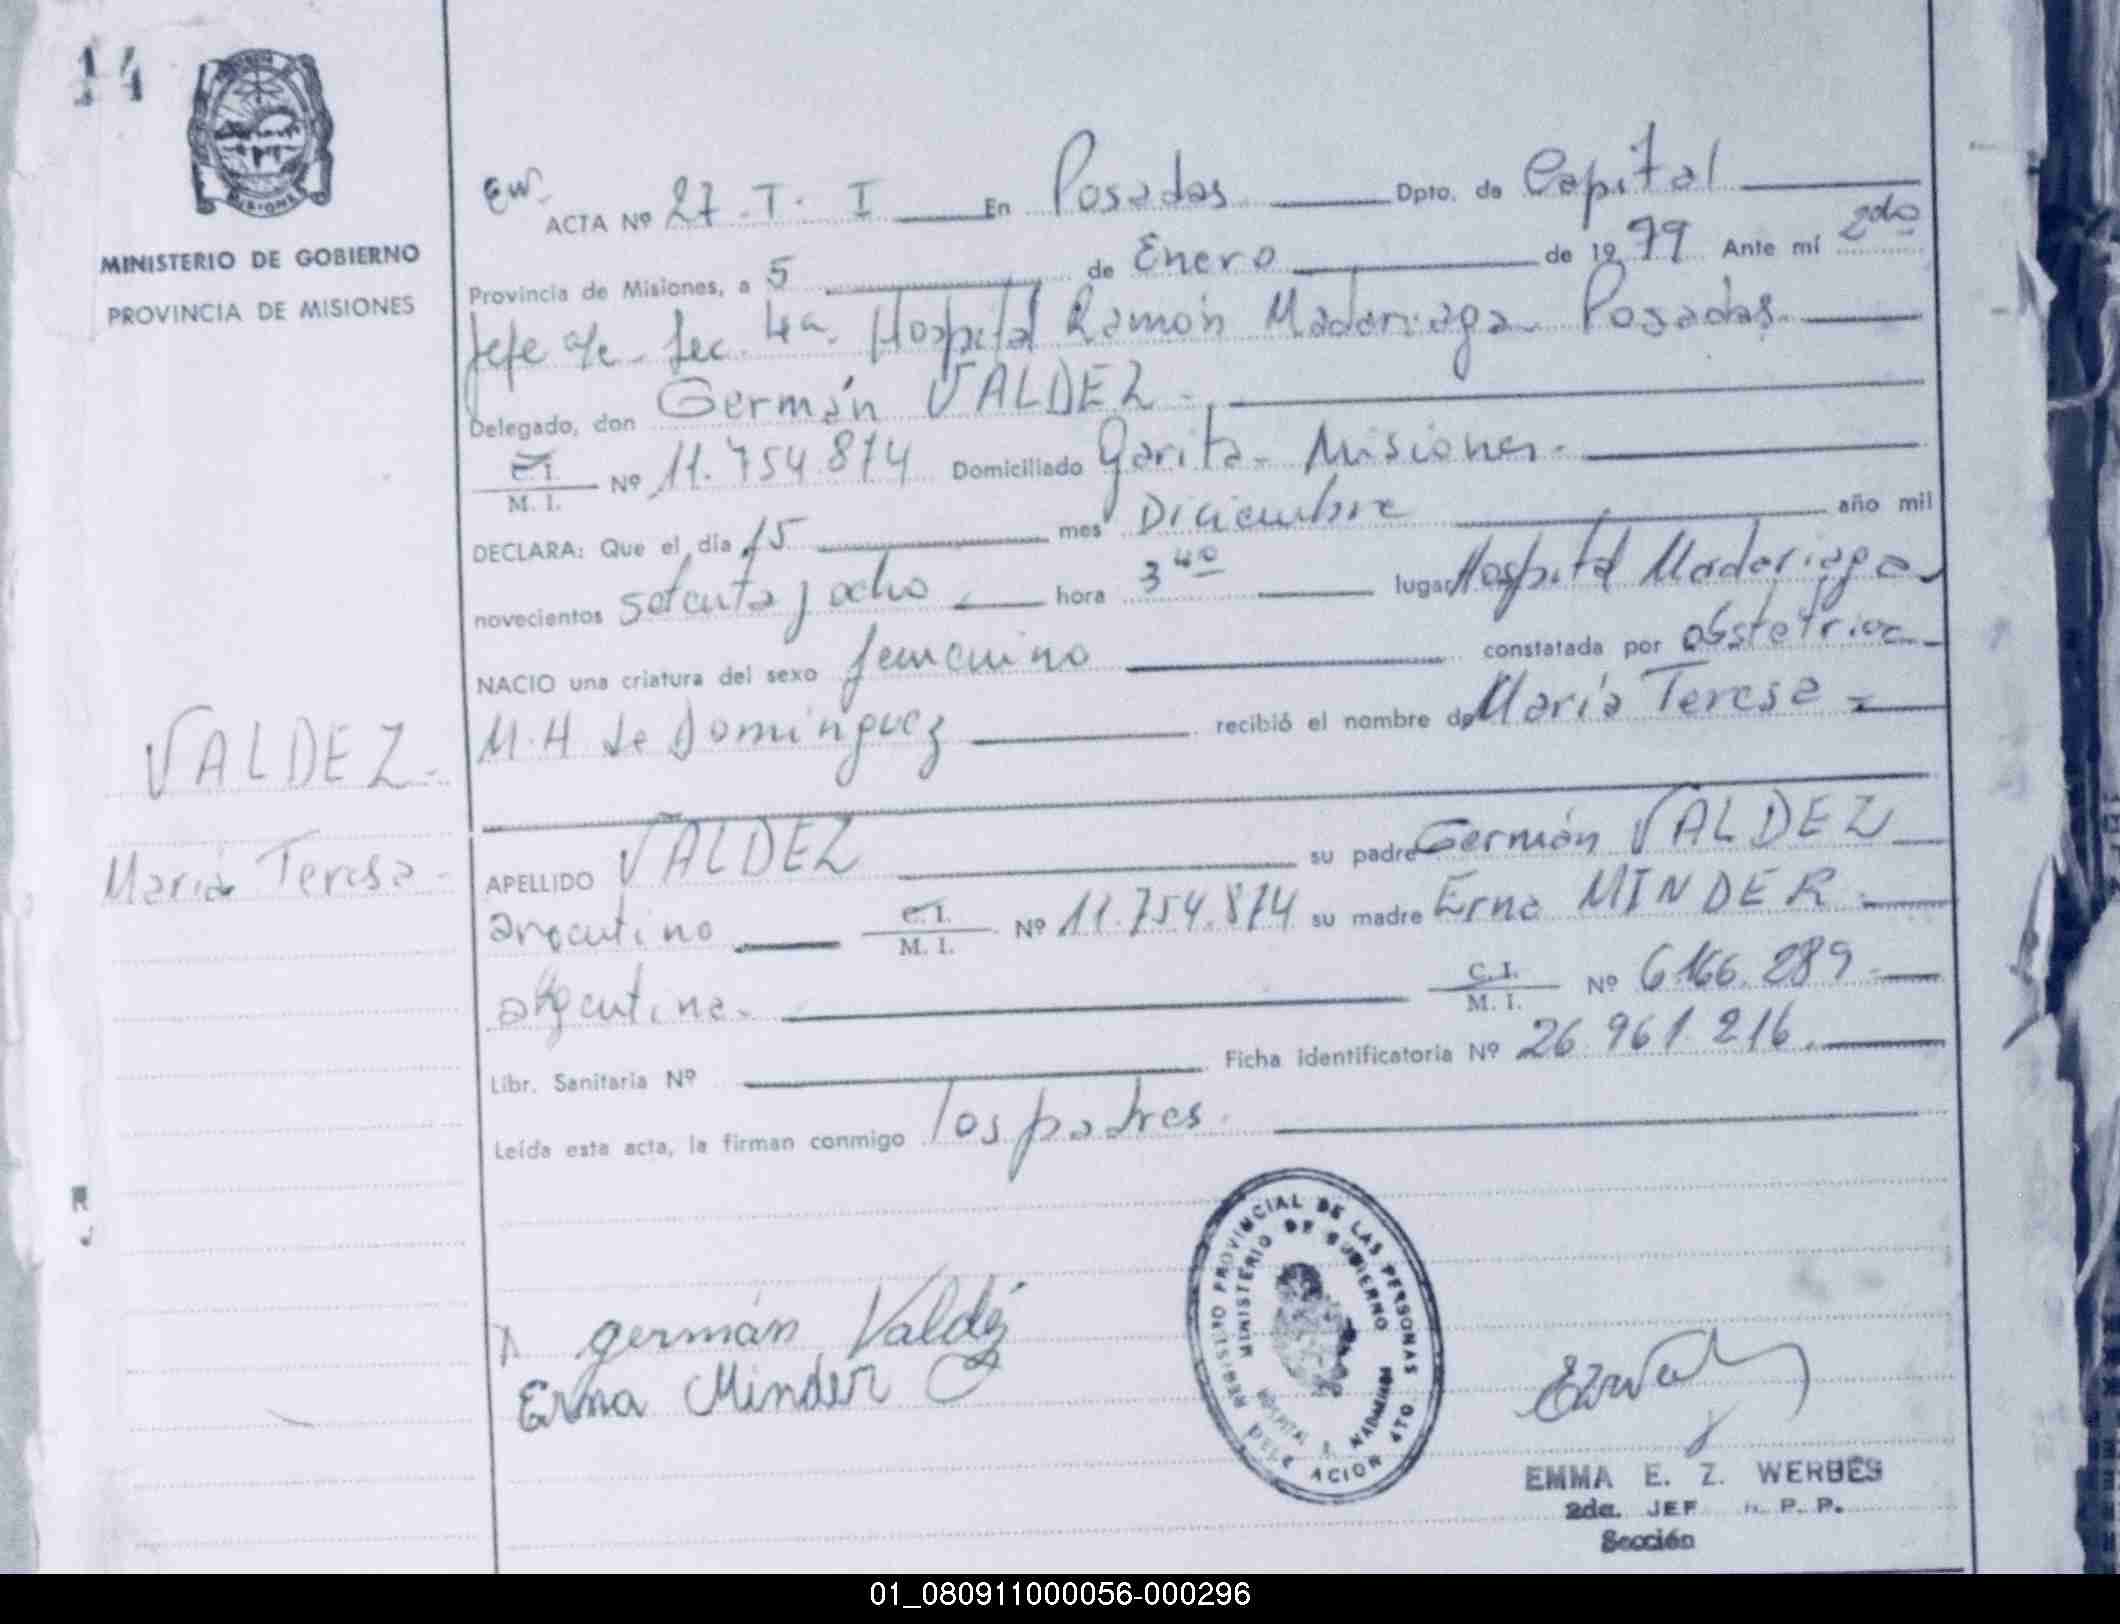 14
MINISTERIO DE GOBIERNO
PROVINCIA DE MISIONES
ACTA Nº 27. T. I En Posadas Dpto. de Capital
Provincia de Misiones, a 5 de Enero de 1979 Ante mí 2do
Jefe Sec. 4a. Hospital Ramón Madariaga Posadas.
Delegado, don Germán VALDEZ -
C.I. / M. I. Nº 11.754.874 Domiciliado Garita - Misiones.
DECLARA: Que el día 15 mes Diciembre año mil
novecientos setenta y ocho hora 3 40 lugar Hospital Madariaga
NACIO una criatura del sexo femenino constatada por obstetrica
M. H de Dominguez recibió el nombre de María Teresa -
VALDEZ -
María Teresa -
APELLIDO VALDEZ su padre Germán VALDEZ
argentino C.I. / M. I. Nº 11.754.874 su madre Erna MINDER -
argentina. C. I. / M. I. Nº 6.166.289 -
Libr. Sanitaria Nº Ficha identificatoria Nº 26.961.216.
Leída esta acta, la firman conmigo los padres.
germán Valdéz
Erna Minder
REGISTRO PROVINCIAL DE LAS PERSONAS
MINISTERIO DE GOBIERNO
HOSPITAL R. MADARIAGA
DELEGACION 4TO.
EMMA E. Z. WERBES
2da. JEF R. P. P.
Sección
01_080911000056-000296